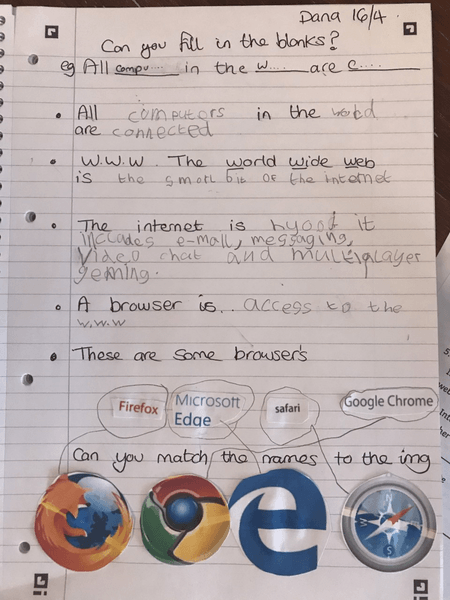 Dana 16/4.
Can you fill in the blanks?
eg All compu.... in the w.... are c....
• All computors in the world
are connected
• W.W.W. The world wide web
is the small bit of the internet
• The internet is hyoot it
includes e-mail, messaging,
Video chat and multiplayer
geming.
• A browser is.. access to the
w.w.w
• These are some browser's
Firefox
Microsoft
Edge
safari
Google Chrome
Can you match the names to the img
N
W
E
S